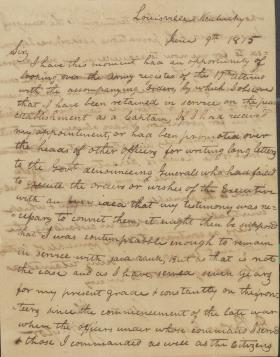 Louisville Kentucky
June 9th 1815
Sir,
I have this moment had an opportunity of
looping over the army register of the 17th Ultimo
with the accompanying orders, by which I observe
that I have been retained in service on the peace
establishment as a Captain, If I had received
my appointment, or had been promoted over
the heads of other officers for writing long letters
to the Govt denouncing Generals who had failed
to execute the orders or wishes of the Executive
with an idea that my testimony was ne-
cessary to convict them, it might then be supposed
that I was contemptable enough to remain
in service with; But as that is not
the case and as I have served seven years
for my present grade & constantly on the fron-
tiers since the commencement of the late war
where the officers under whose command I served
& those I commanded as well as the Citizens